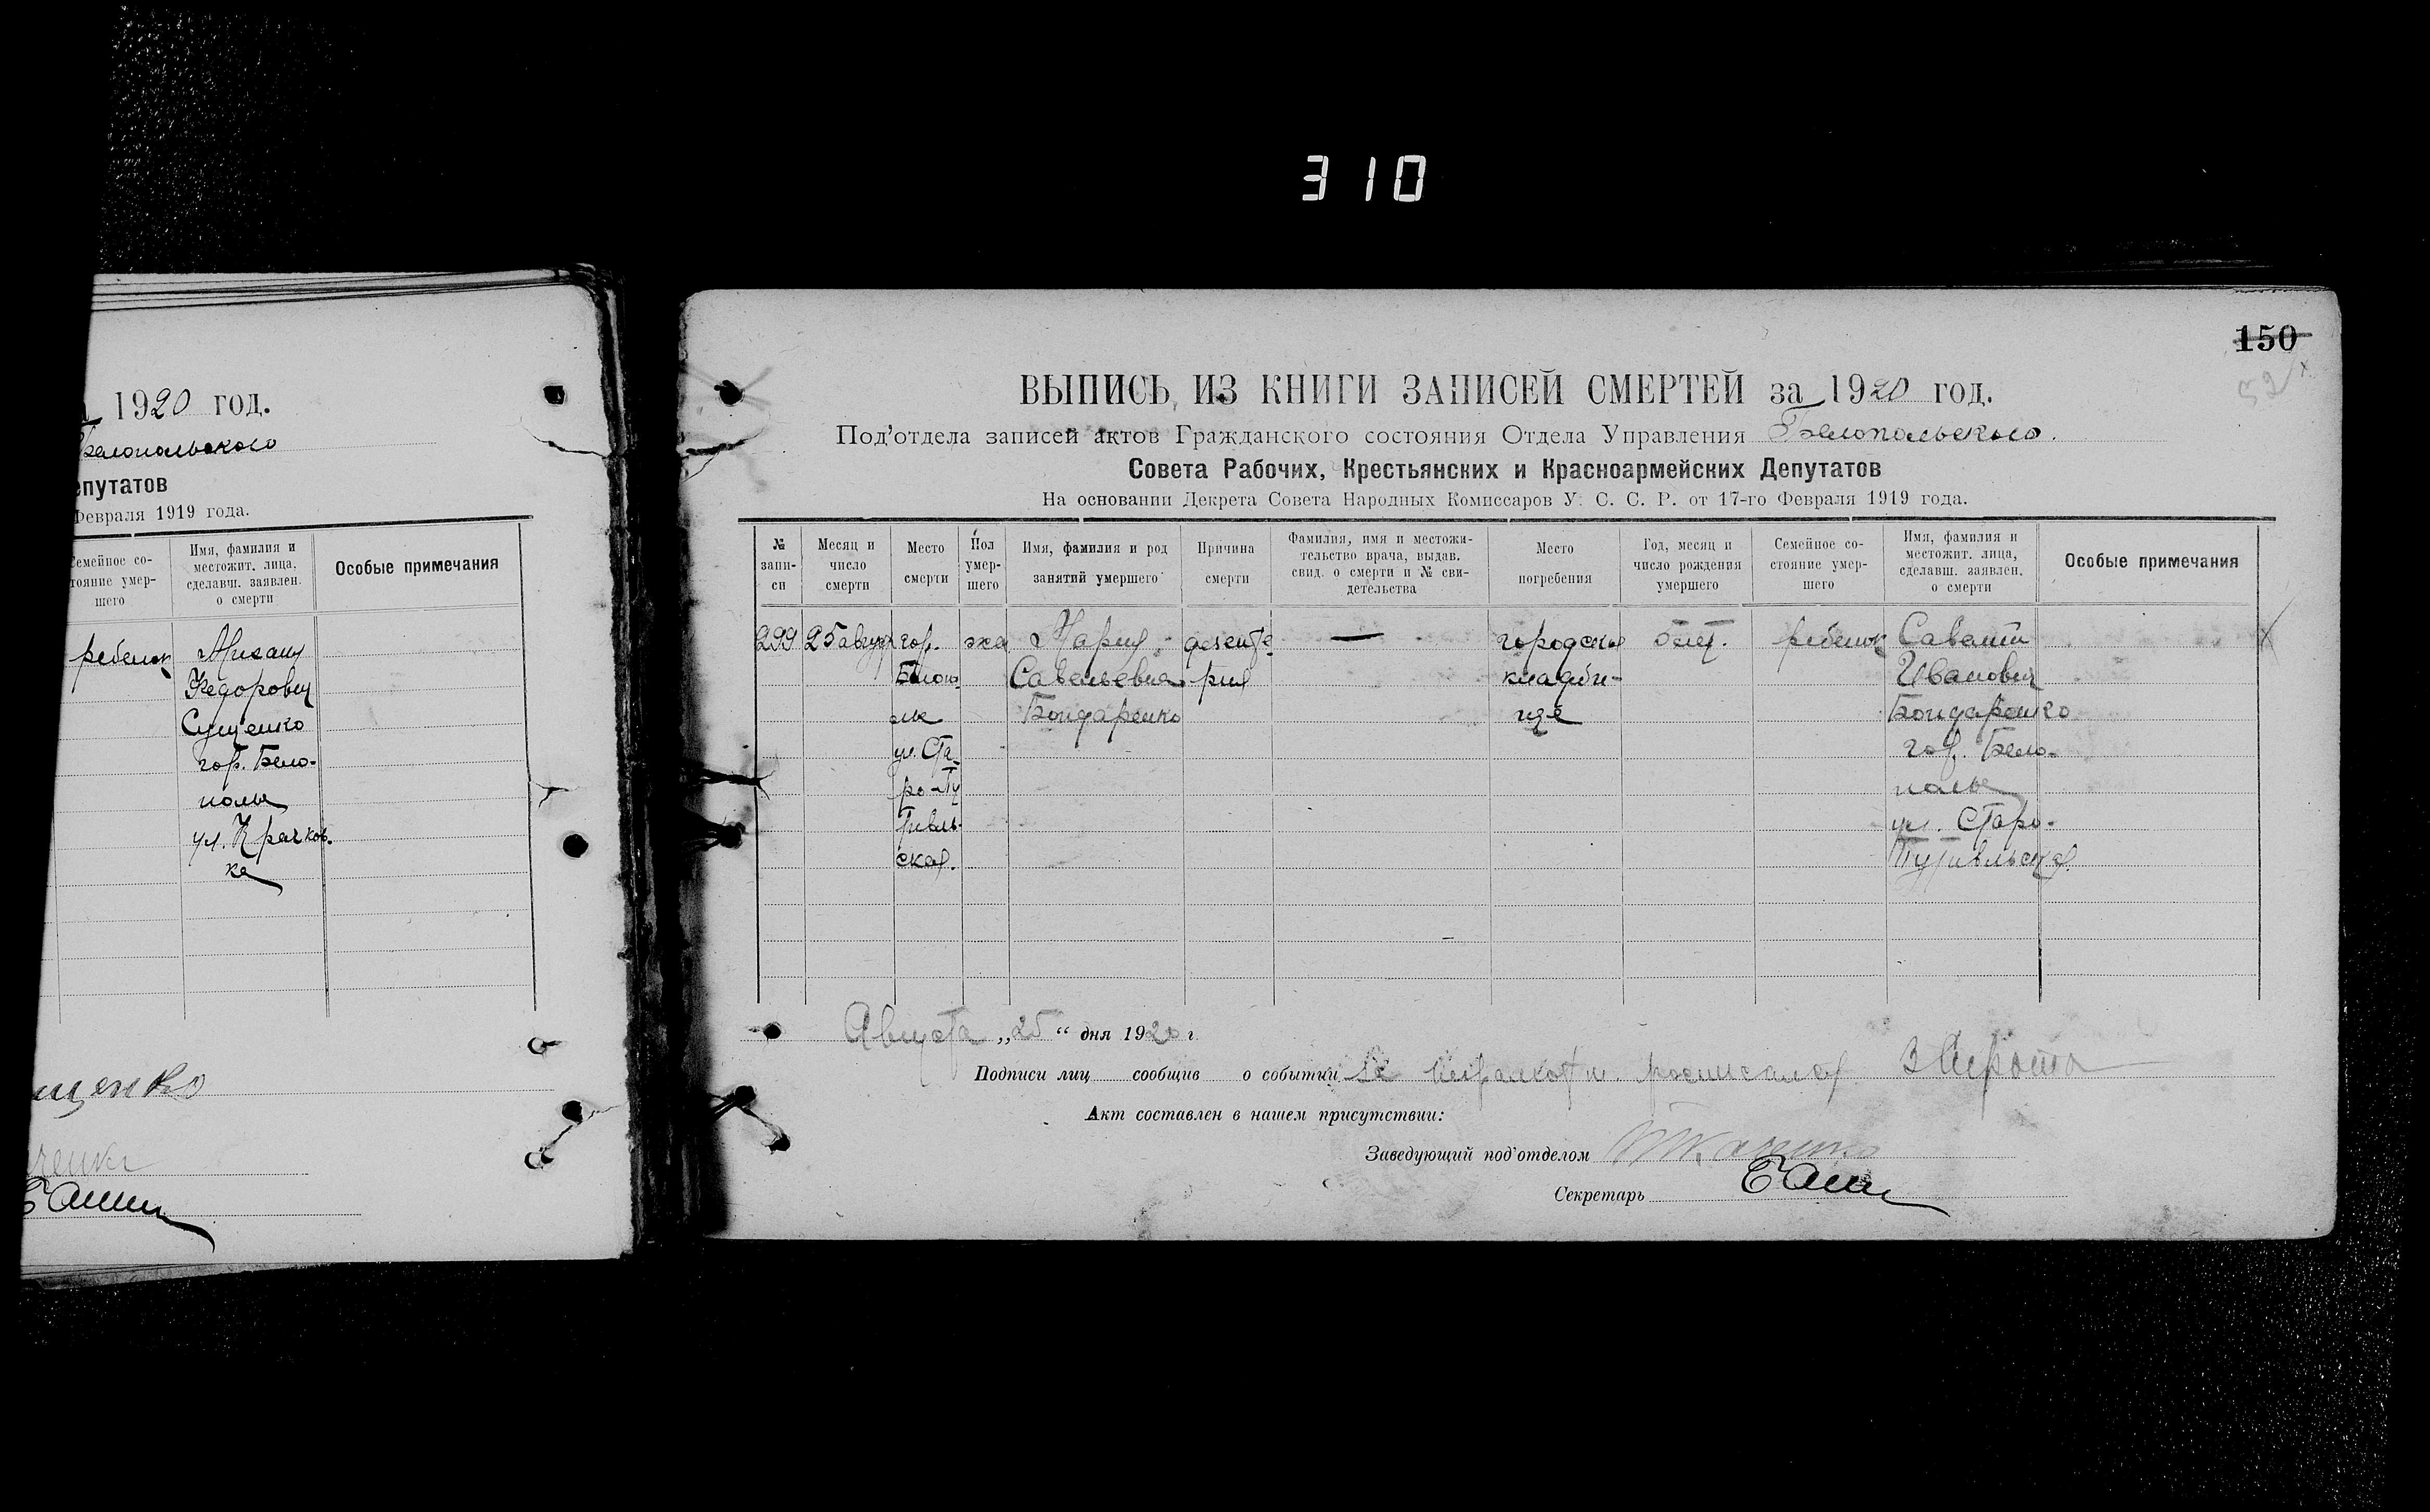 310
1920 год.
Белопольского
епутатов
Февраля 1919 года.
Семейное со-
тояние умер-
шего
Имя, фамилия и
местожит. лица,
сделавш. заявлен.
о смерти
Особые примечания
ребенок
Михаил
Федорович
Сущенко
гор. Бело-
полье
ул. Крачков-
ка
щенко
150
52
ВЫПИСЬ ИЗ КНИГИ ЗАПИСЕЙ СМЕРТЕЙ за 1920 год.
Под'отдела записей актов Гражданского состояния Отдела Управления Белопольского.
Совета Рабочих, Крестьянских и Красноармейских Депутатов
На основании Декрета Совета Народных Комиссаров У. С. С. Р. от 17-го Февраля 1919 года.
№
запи-
си
Месяц и
число
смерти
Место
смерти
Пол
умер-
шего
Имя, фамилия и род
занятий умершего
Причина
смерти
Фамилия, имя и местожи-
тельство врача, выдав.
свид. о смерти и № сви-
детельства
Место
погребения
Год, месяц и
число рождения
умершего
Семейное со-
стояние умер-
шего
Имя, фамилия и
местожит. лица,
сделавш. заявлен.
о смерти
Особые примечания
299
25 август
гор.
Белопо-
лье
ул. Ста-
ро-Пу
тивль-
ская.
жен
Мария
Савельевна
Бондаренко
дизенте-
рия
—
городское
кладби-
ще
5 лет.
ребенок
Савелий
Иванович
Бондаренко
гор. Бело-
полье
ул. Старо-
Путивльская.
Августа „25“ дня 1920 г
Подписи лиц сообщив о событии за неграмотн. росписался
Акт составлен в нашем присутствии:
Заведующий под'отделом
Секретарь